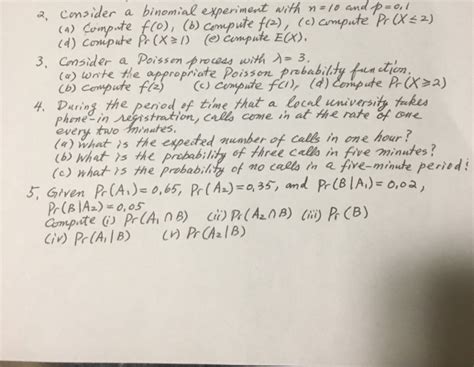 2. Consider a binomial experiment with n=10 and p=0.1
(a) Compute f(0), (b) compute f(2), (c) compute Pr(X≤2)
(d) compute Pr(X≥1) (e) compute E(X).
3. Consider a Poisson process with λ=3.
(a) write the appropriate Poisson probability function.
(b) compute f(2) (c) compute f(1), (d) compute Pr(X≥2)
4. During the period of time that a local university takes
phone-in registration, calls come in at the rate of one
every two minutes.
(a) what is the expected number of calls in one hour?
(b) What is the probability of three calls in five minutes?
(c) what is the probability of no calls in a five-minute period?
5. Given Pr(A₁)=0.65, Pr(A₂)=0.35, and Pr(B|A₁)=0.02,
Pr(B|A₂)=0.05
Compute (i) Pr(A₁∩B) (ii) Pr(A₂∩B) (iii) Pr(B)
(iv) Pr(A₁|B) (v) Pr(A₂|B)